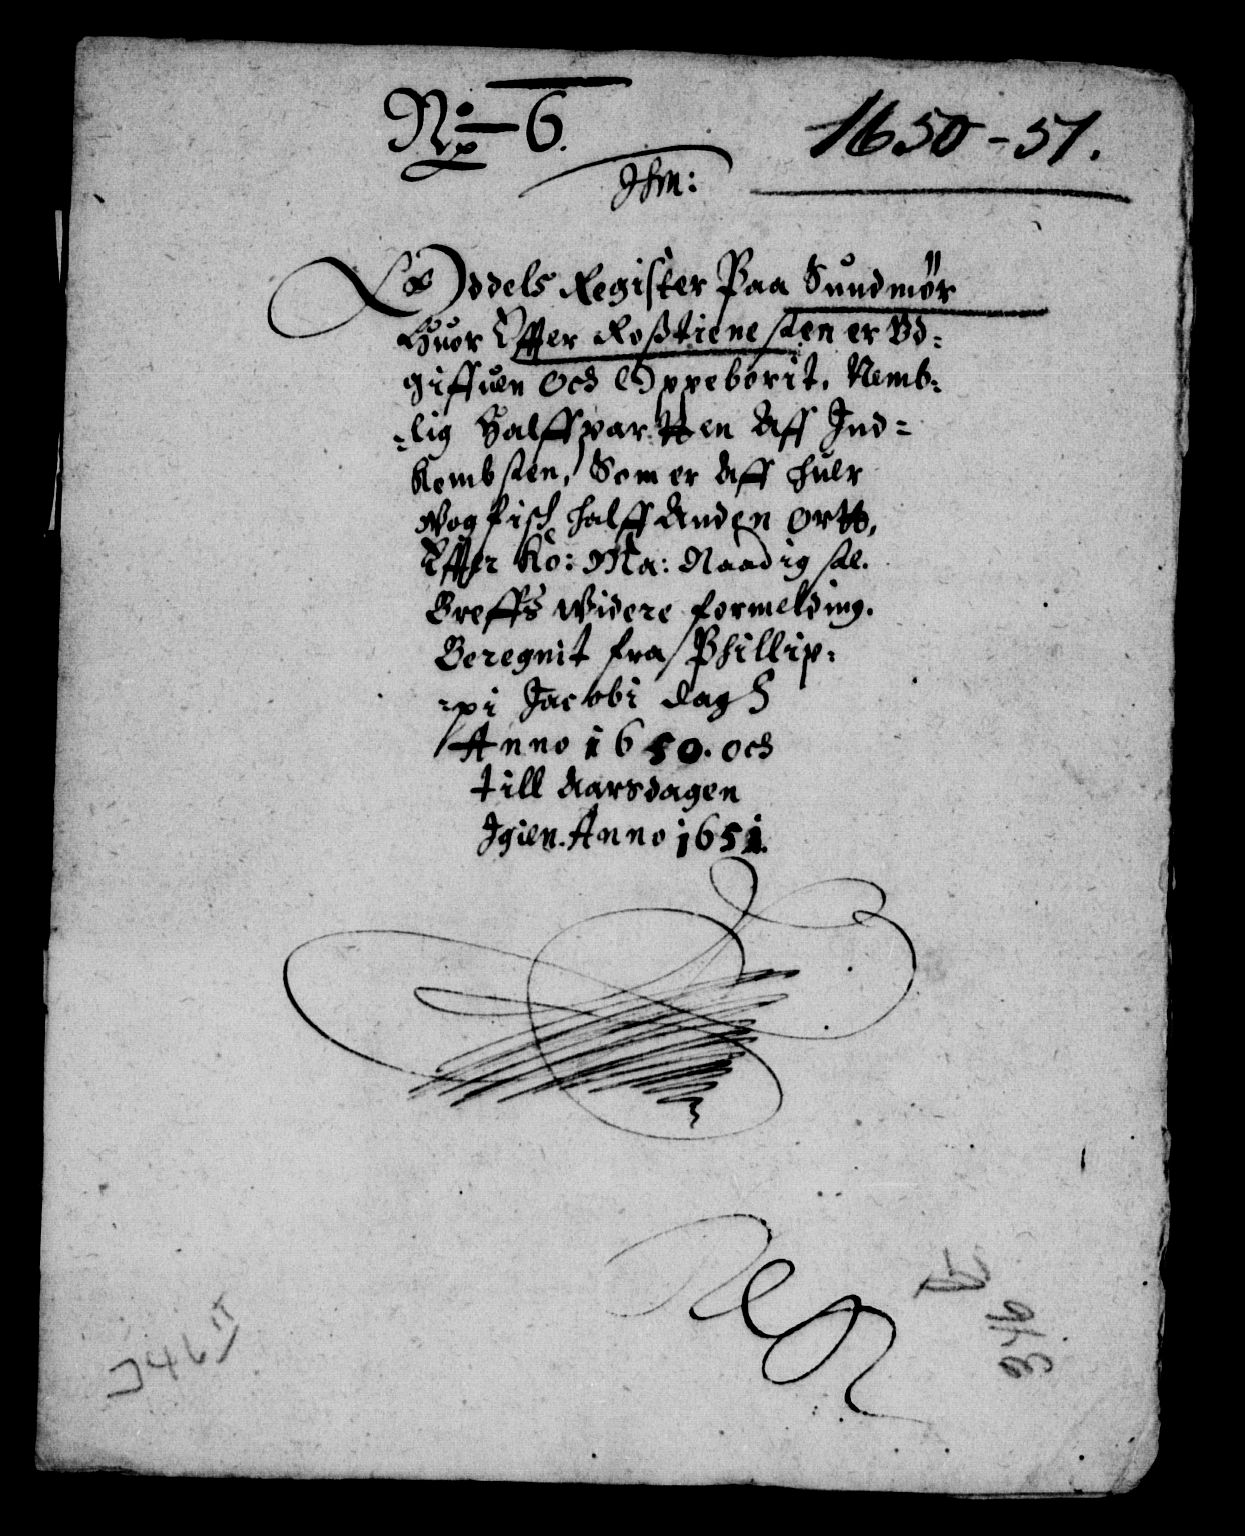 No 6.
1650-51.
Ihm:
Oddels Register Paa Sundmør
Huor Effter Roßtienesten er Vd=
giffuen Och Oppeborit, Nemb=
=lig Halffparten Aff Ind=
Kombsten, Som er Aff huer
Wog fisch halff Anden Ortt,
Effter Ko: Ma: Naadigste.
Breffs Widere formelding.
Beregnit fra Phillip=
=pi Jacobi dag
Anno 1650. Och
till Aarsdagen
Igien. Anno 1651.